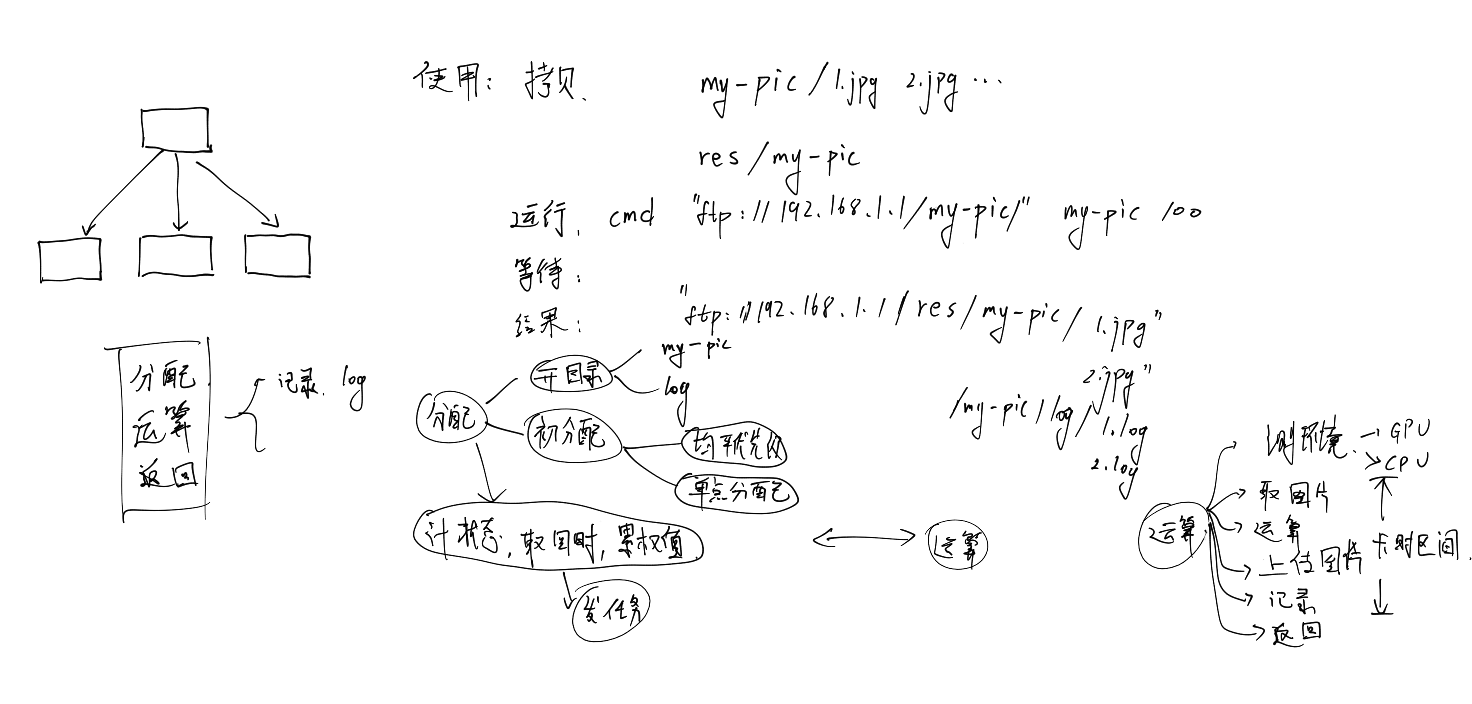 使用: 拷贝.
my-pic/1.jpg 2.jpg ...
res/my-pic
运行, cmd "ftp://192.168.1.1/my-pic/" my-pic 100
等待:
结果: "ftp://192.168.1.1/res/my-pic/1.jpg"
2.jpg"
/my-pic/log/1.log
2.log
分配
运算
返回
记录. log
分配
开目录
my-pic
log
初分配
均平优先级
单点分配
计状态, 取回时, 累权值
发任务
运算
运算
测环境. → GPU
→ CPU
取图片
运算
上传图片
记录
返回
卡时区间.